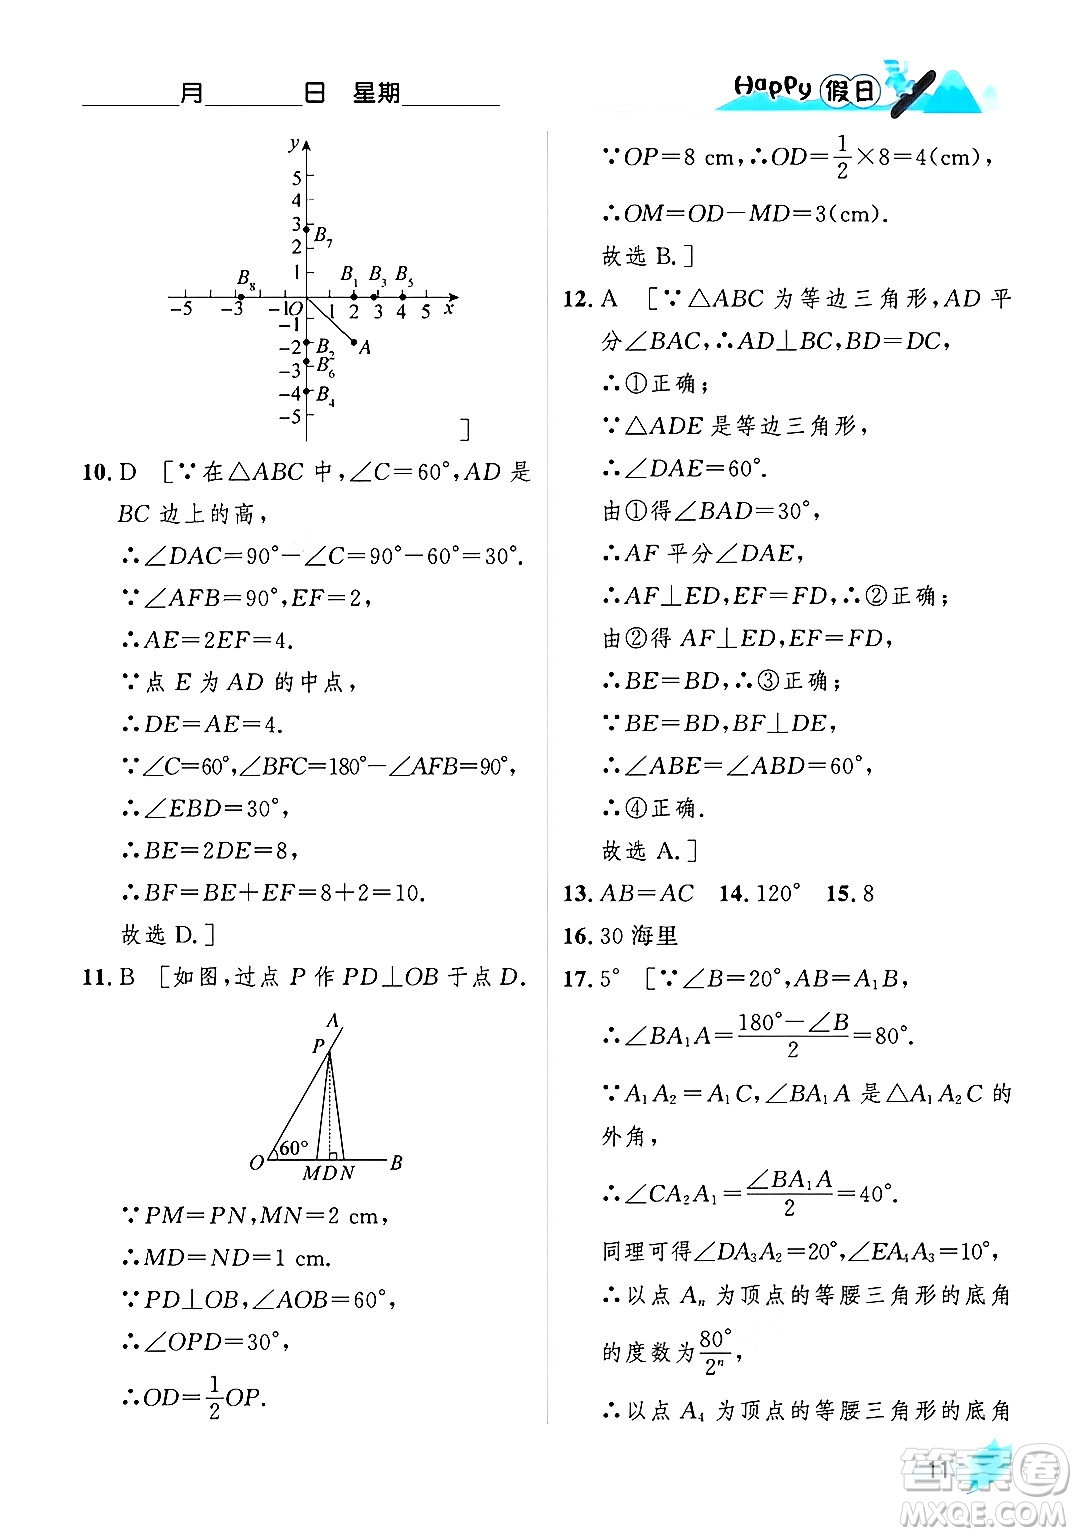 月 日 星期
Happy 假日
y
5
4
3
2
1
B₇
B₈
B₁ B₃ B₅
-5 -3 -1 O 1 2 3 4 5 x
-1
-2
-3
-4
-5
B₂
B₆
B₄
A
]
10. D [∵在△ABC中,∠C=60°,AD是
BC边上的高,
∴∠DAC=90°-∠C=90°-60°=30°.
∵∠AFB=90°,EF=2,
∴AE=2EF=4.
∵点E为AD的中点,
∴DE=AE=4.
∵∠C=60°,∠BFC=180°-∠AFB=90°,
∴∠EBD=30°,
∴BE=2DE=8,
∴BF=BE+EF=8+2=10.
故选D.]
11. B [如图,过点P作PD⊥OB于点D.
A
P
60°
O M D N B
∵PM=PN,MN=2 cm,
∴MD=ND=1 cm.
∵PD⊥OB,∠AOB=60°,
∴∠OPD=30°,
∴OD=1/2OP.
∵OP=8 cm,∴OD=1/2×8=4(cm),
∴OM=OD-MD=3(cm).
故选B.]
12. A [∵△ABC为等边三角形,AD平
分∠BAC,∴AD⊥BC,BD=DC,
∴①正确;
∵△ADE是等边三角形,
∴∠DAE=60°.
由①得∠BAD=30°,
∴AF平分∠DAE,
∴AF⊥ED,EF=FD,∴②正确;
由②得AF⊥ED,EF=FD,
∴BE=BD,∴③正确;
∵BE=BD,BF⊥DE,
∴∠ABE=∠ABD=60°,
∴④正确.
故选A.]
13. AB=AC 14. 120° 15. 8
16. 30海里
17. 5° [∵∠B=20°,AB=A₁B,
∴∠BA₁A=(180°-∠B)/2=80°.
∵A₁A₂=A₁C,∠BA₁A是△A₁A₂C的
外角,
∴∠CA₂A₁=∠BA₁A/2=40°.
同理可得∠DA₃A₂=20°,∠EA₄A₃=10°,
∴以点Aₙ为顶点的等腰三角形的底角
的度数为80°/2ⁿ,
∴以点A₄为顶点的等腰三角形的底角
11
答案卷
MXQE.COM